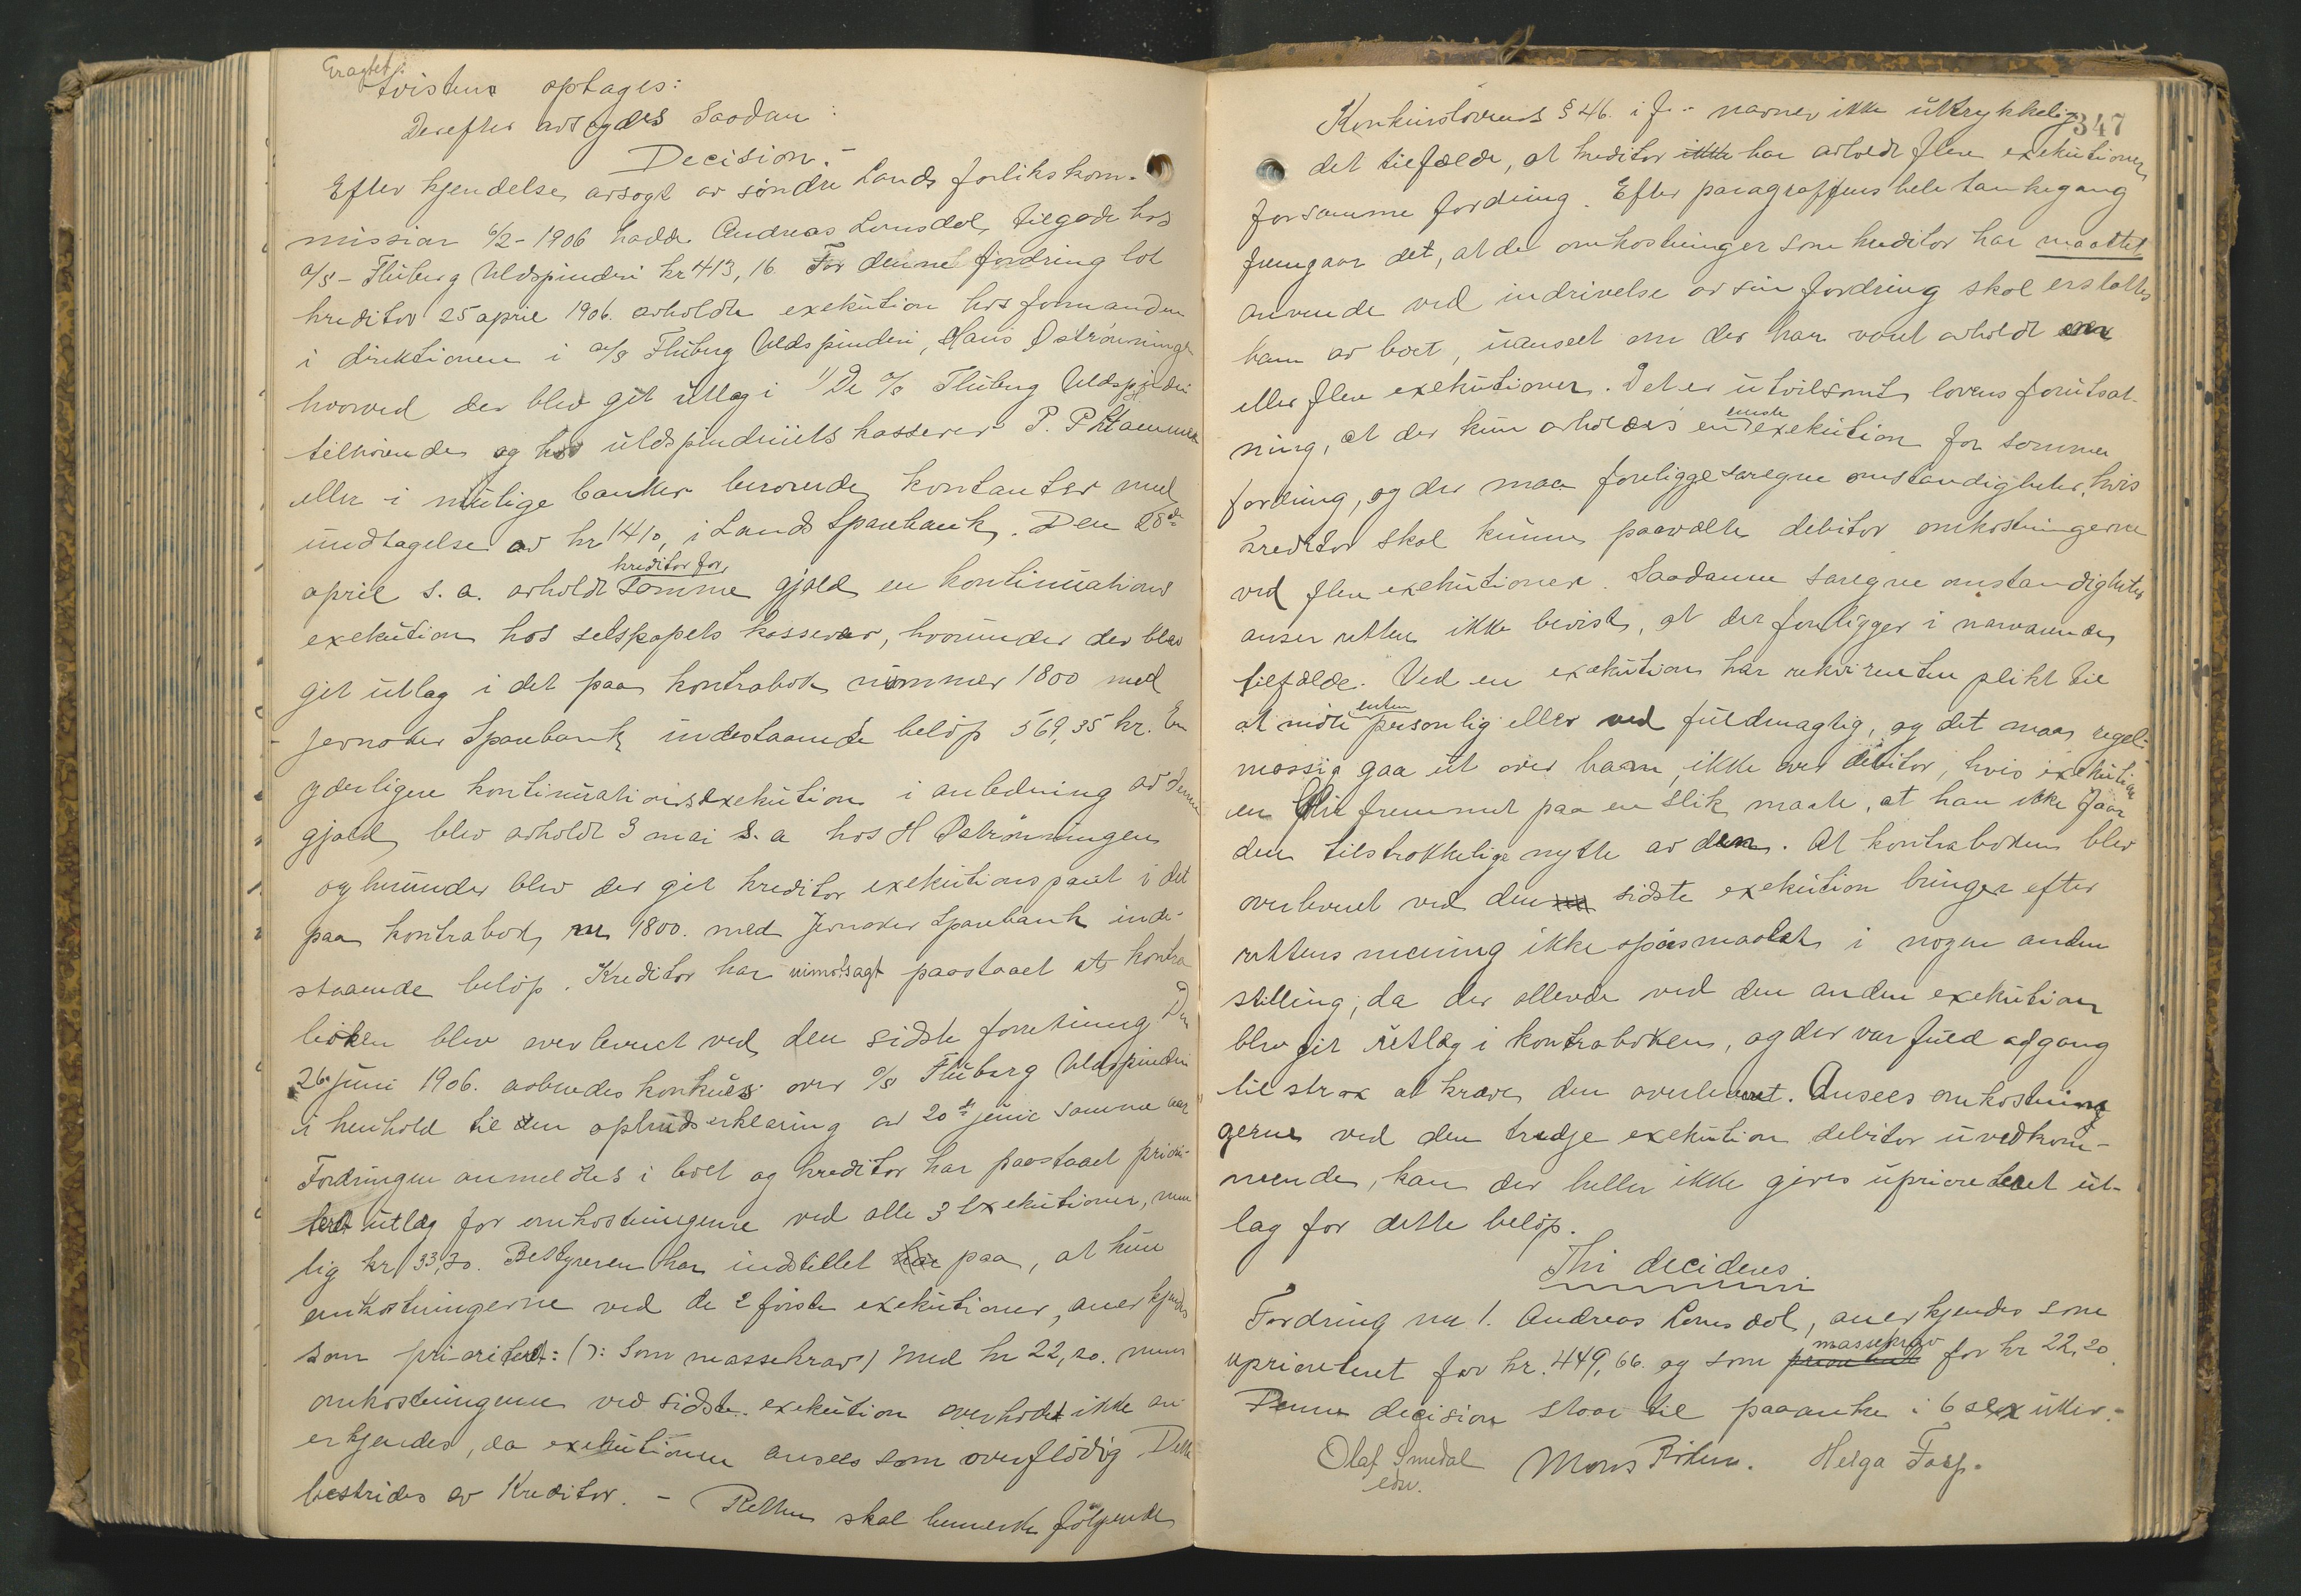 Eragtet:
Tvisten optages:
Derefter avsagdes saadan:
Decision.-
Efter kjendelse avsagt av søndre Lands forlikskom-
mission 6/2-1906 hadde Andreas Lonsdal tilgode hos
a/s- Fluberg Uldspinderi kr 413,16. For denne fordring lot
kreditor 25 april 1906. avholde exekution hos formanden
i direktionen i a/s Fluberg Uldspinderi, Hans Østrønningen
hvorved der blev git utlæg i 1/ De a/s Fluberg Uldspinderi
tilhørende og hos uldspinderiets kasserer P. P. Staemmen
eller i mulige banker beroende kontanter med
undtagelse av kr 1410, i Lands Sparebank. Den 28de
april s. a. avholdt kreditor for samme gjæld en kontinuations
exekution hos selskapets kasserer, hvorunder der blev
git utlæg i det paa kontrabok nummer 1800 med
Jevnaker Sparebank indestaaende beløp 569,35 kr. En
yderligere kontinuationsexekution i anledning av denne
gjæld blev avholdt 3 mai s. a hos H Østrønningen
og hvunder blev der git kreditor exekutionspant i det
paa kontrabok nr 1800. med Jevnaker Sparebank inde-
staaende beløp. Kreditor har uimotsagt paastaaet at kontra
boken blev overleveret ved den sidste forretning Den
26. juni 1906. aabnedes konkurs over a/s Fluberg Uldspinderi
i henhold til den opbudserklæring av 20de juni samme aar
Fordringen anmeldtes i boet og kreditor har paastaaet priori-
teret utlæg for omkostningerne ved alle 3 exekutioner, nem
lig kr 33,30. Bestyreren har indstillet har paa, at kun
omkostningerne ved de 2 første exekutioner, anerkjendes
som prioriteret: (): som massekrav) med kr 22,20. mens
omkostningerne ved sidste exekution overhodet ikke an
erkjendes, da exekutionen ansees som overflødig Dette
bestrides av Kreditor. - Retten skal bemerke følgende
347
Konkurslovens § 46. i f.- nævner ikke uttrykkelig
det tilfælde, at kreditor ikke har avholdt flere exekutioner
for samme fordring. Efter paragraffens hele tankegang
fremgaar det, at de omkostninger som kreditor har maattet
anvende ved inddrivelse av sin fordring skal erstattes
ham av boet, uanseet om der har været avholdt en
eller flere exekutioner. Det er utvilsomt lovens forutsæt-
ning, at der kun avholdes en eneste exekution for samme
fordring, og der maa foreligge særegne omstændigheter, hvis
kreditor skal kunne paavælte debitor omkostningerne
ved flere exekutioner. Saadanne særegne omstændigheter
anser retten ikke bevist, at der foreligger i nærværende
tilfælde. Ved en exekution har rekvirenten plikt til
at møte enten personlig eller ved fuldmægtig, og det maa regel-
mæssig gaa ut over ham, ikke over debitor, hvis exekution
en blir fremmet paa en slik maate, at han ikke faar
den tilstrækkelige nytte av den. At kontraboken blev
overleveret ved den sidste exekution bringer efter
rettens mening ikke spørsmaalet i nogen anden
stilling, da der allerede ved den anden exekution
blev git utlæg i kontraboken, og der var fuld adgang
til strax at kræve den overleveret. Ansees omkostnin
gerne ved den tredje exekution debitor uvedkom-
mende, kan der heller ikke gives uprioriteret ut-
læg for dette beløp.
Thi decideres
Fordring nr 1. Andreas Lonsdal, anerkjendes som
uprioriteret for kr. 449,66. og som prioriteret massekrav for kr 22,20.
Denne decision staar til paaanke i 6 sex uker.-
Olaf Smedal Mons Röken. Helga Fasp.
edsv.